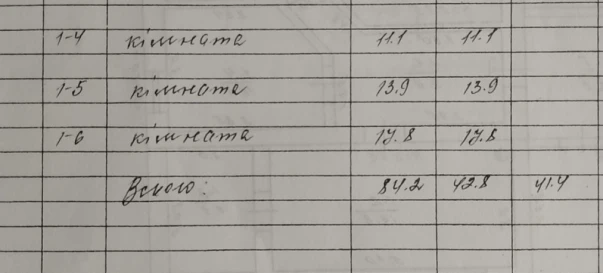 1-4 кімната 11.1 11.1
1-5 кімната 13.9 13.9
1-6 кімната 17.8 17.8
Всього: 84.2 42.8 41.4